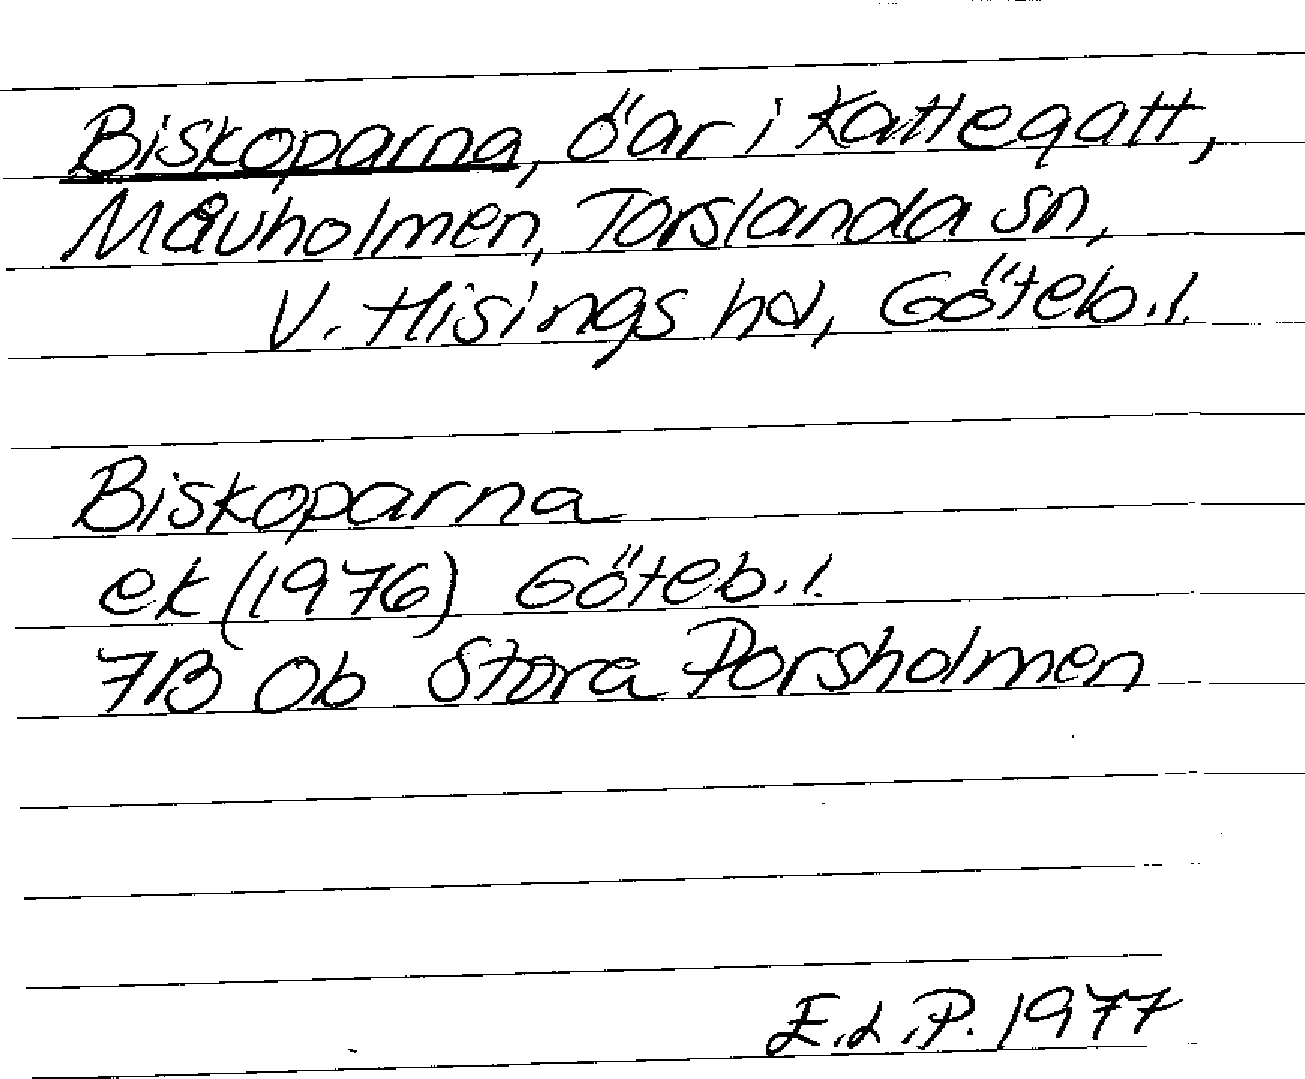 Biskoparna, öar i Kattegatt,
Måvholmen, Torslanda sn,
V. Hisings hd, Göteb.l.
Biskoparna
ek (1976) Göteb.l.
7B 0b Stora Porsholmen
E.L.P. 1977